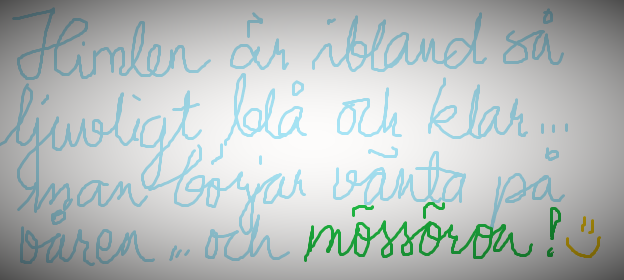 Himlen är ibland så
ljuvligt blå och klar...
man börjar vänta på
våren... och mössöron! :)